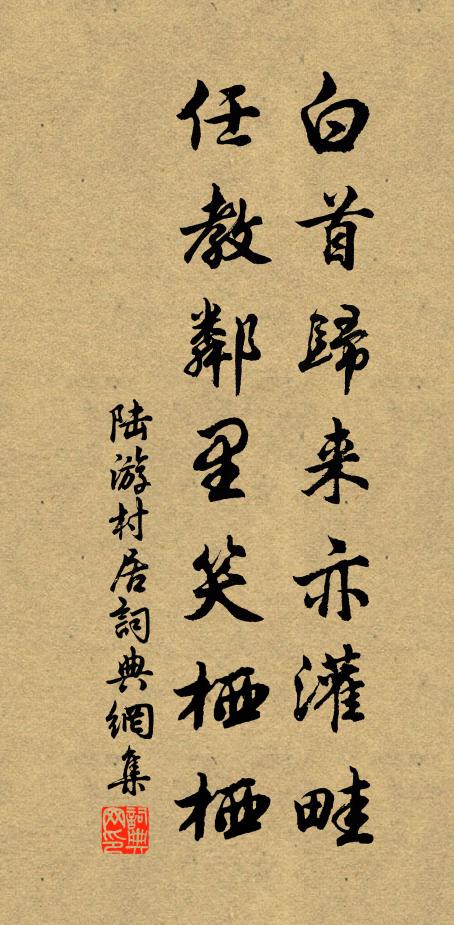 白首歸来亦灌畦
任教鄰里笑栖栖
陆游村居詞典網集
詞典网印